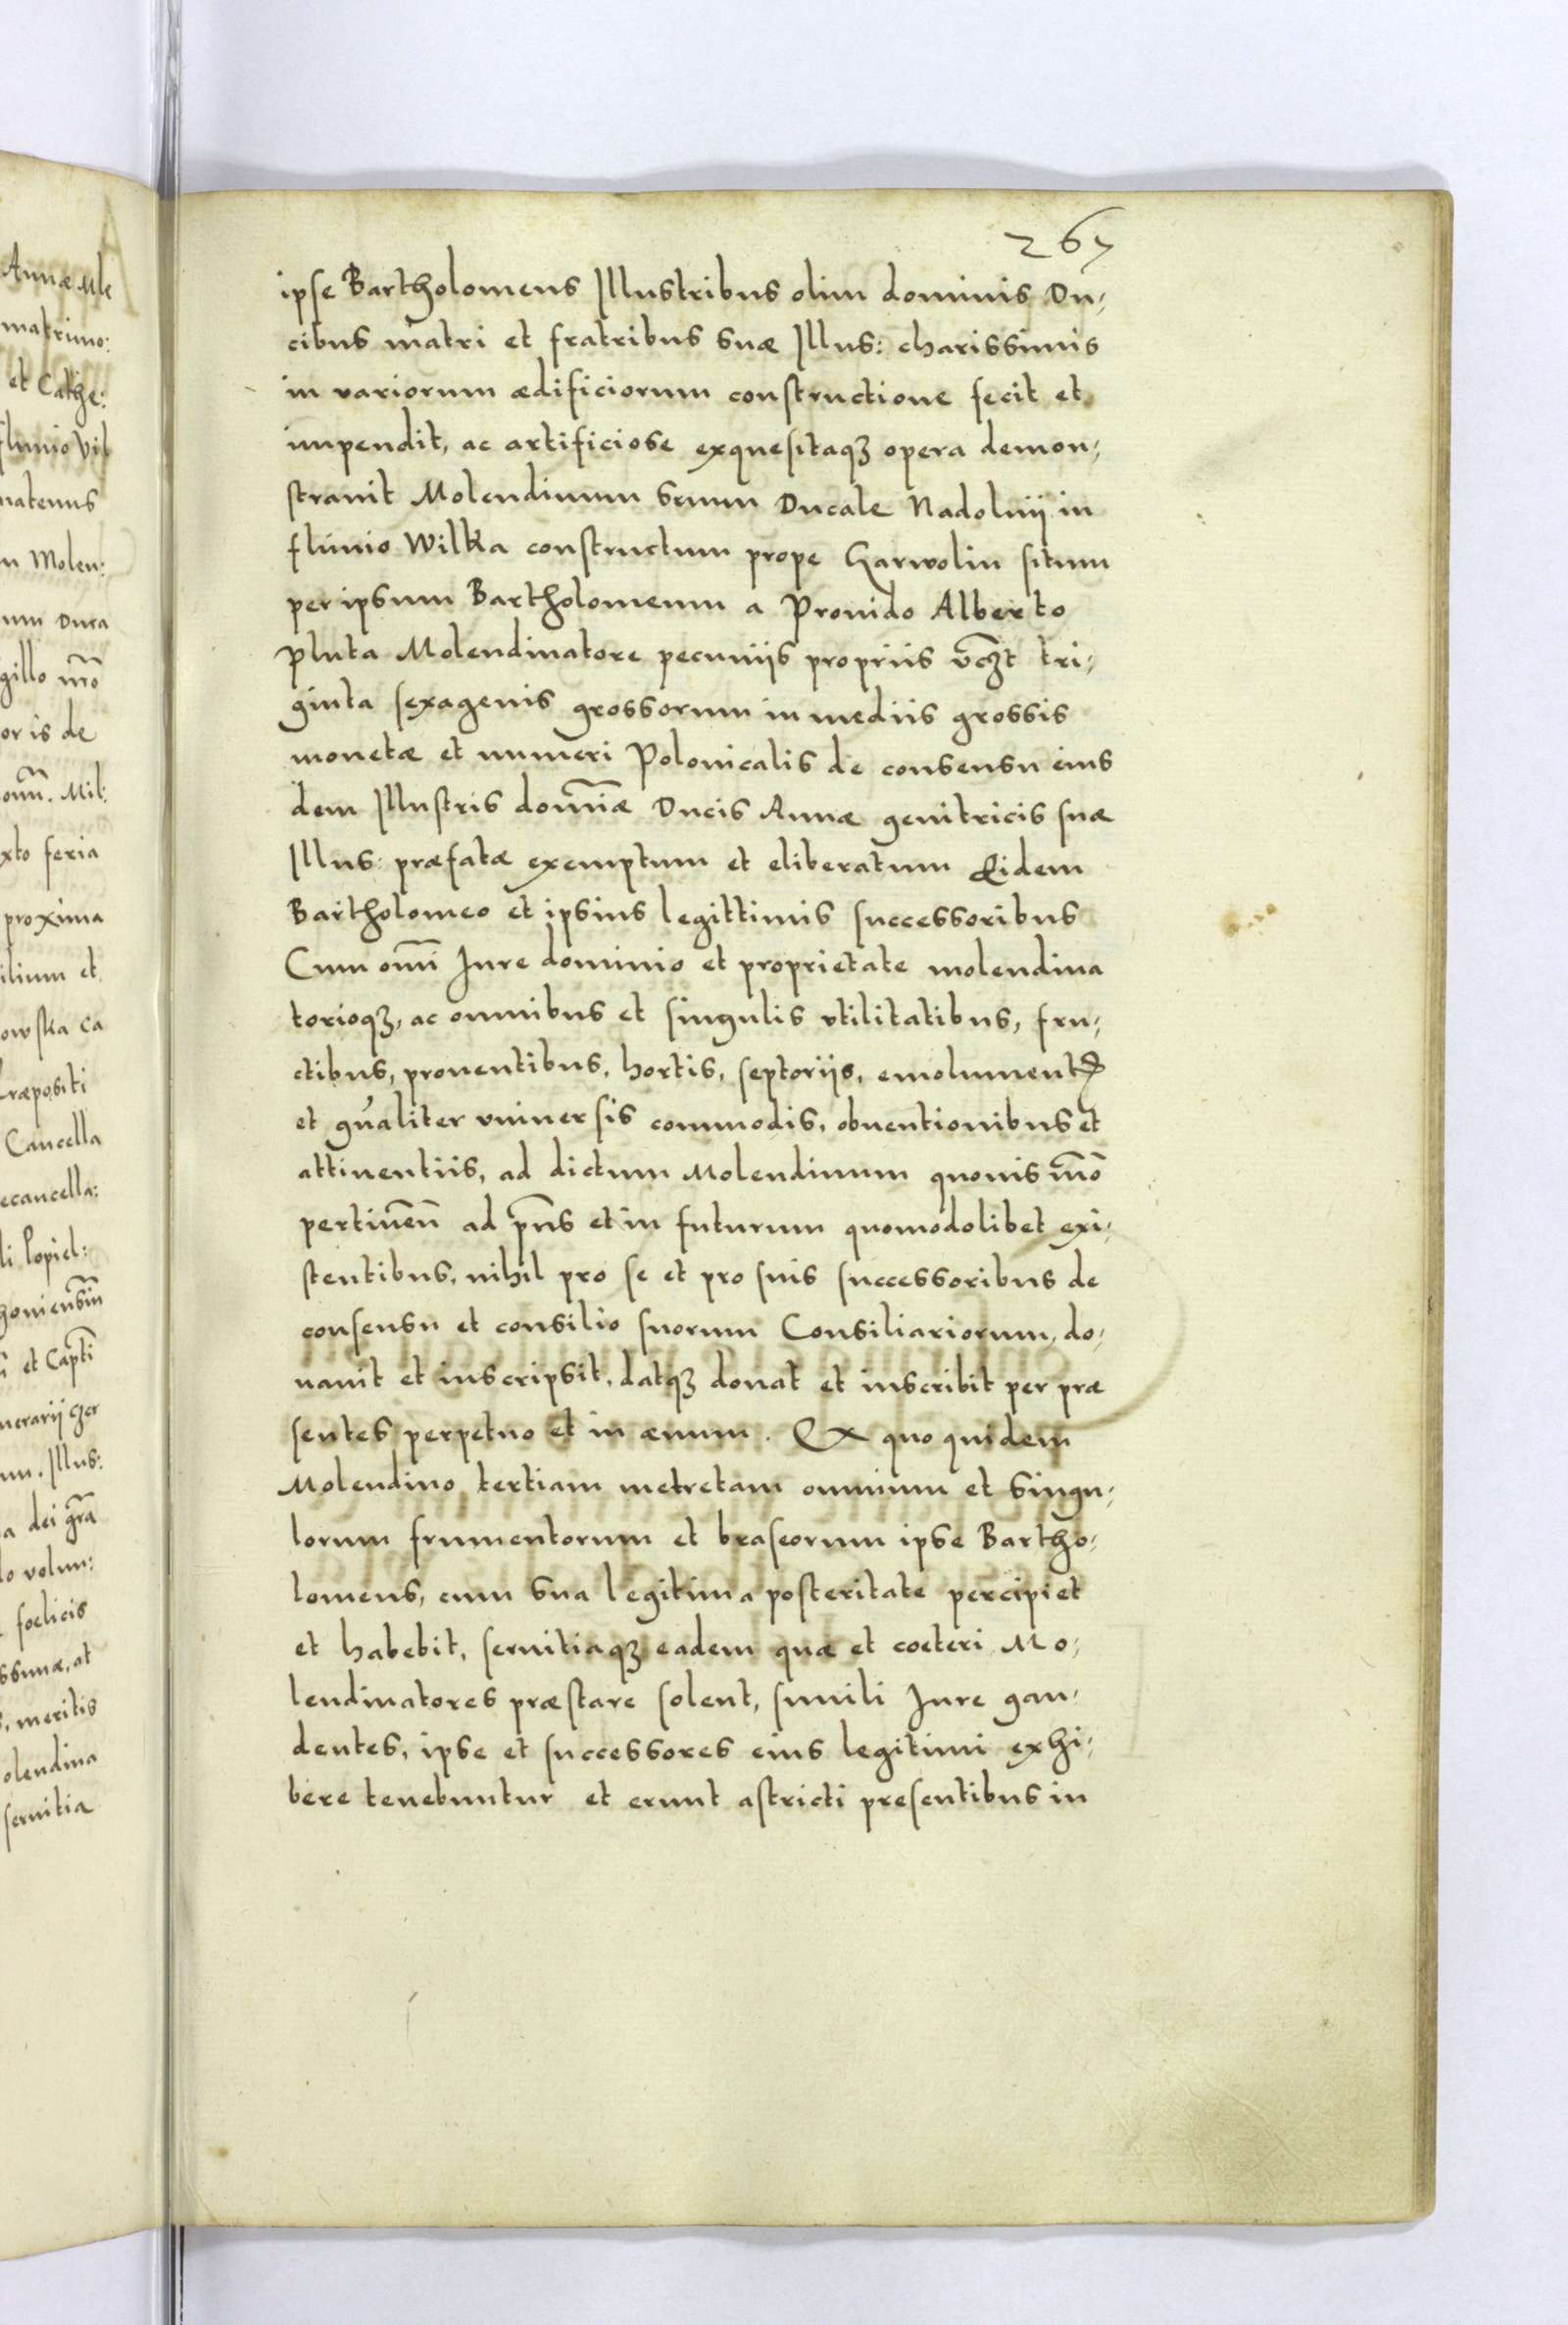 267
ipse Bartholomeus Illustribus olim dominis Du,
cibus matri et fratribus suæ Illus: charissimis
in variorum ædificiorum constructione fecit et
impendit, ac artificiose exquesitaqꝫ opera demon,
strauit Molendinum suum Ducale Nadolnij in
fluuio Wilka constructum prope Garwolin situm
per ipsum Bartholomeum a Prouido Alberto
Pluta Molendinatore pecunijs proprijs vcꝫt tri,
ginta sexagenis grossorum in mediis grossis
monetæ et numeri Polonicalis de consensu eius
dem Illustris domīæ Ducis Annæ genitricis suæ
Illus: præfatæ exemptum et eliberatum Eidem
Bartholomeo et ipsius legittimis successoribus
Cum omī Iure dominio et proprietate molendina
torioqꝫ, ac omnibus et singulis vtilitatibus, fru,
ctibus, prouentibus, hortis, septorijs, emolumentꝭ
et gn̄aliter vniuersis commodis, obuentionibus et
attinentiis, ad dictum Molendinum quouis mō
pertineñ ad pn̄s et in futurum quomodolibet exi,
stentibus, nihil pro se et pro suis successoribus de
consensu et consilio suorum Consiliariorum, do,
nauit et inscripsit, datqꝫ donat et inscribit per præ
sentes perpetuo et in æuum. Ex quo quidem
Molendino tertiam metretam omnium et singu,
lorum frumentorum et braseorum ipse Bartho,
lomeus, cum sua legitima posteritate percipiet
et habebit, seruitiaqꝫ eadem quæ et coeteri Mo,
lendinatores præstare solent, simili Iure gau,
dentes, ipse et successores eius legitimi exhi,
bere tenebuntur et erunt astricti presentibus in